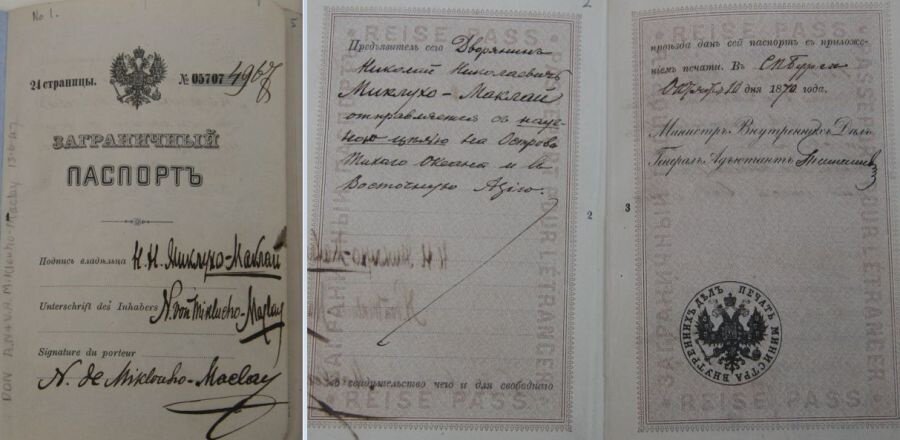 No 1.
24 страницы.
№ 05707
4967
ЗАГРАНИЧНЫЙ
ПАСПОРТЪ
Подпись владѣльца Н. Н. Миклухо-Маклай
Unterschrift des Inhabers N. von Miklucho-Maclay
Signature du porteur
N. de Mikloukho-Maclay
DON A.N & V.A. M. Klouho-Maclay 13.6.47
2
REISE PASS
Предъявитель сего Дворянинъ
Николай Николаевичъ
Миклухо-Маклай
отправляется съ науч-
ною цѣлью на Острова
Тихаго Океана и въ
Восточную Азію.
Во свидѣтельство чего и для свободнаго
REISE PASS
ЗАГРАНИЧНЫЙ
PASSEPORT POUR L'ÉTRANGER
2
3
REISE PASS
проѣзда данъ сей паспортъ съ приложе-
ніемъ печати. Въ С.П.Бургѣ
Октября 10 дня 1870 года.
Министръ Внутреннихъ Дѣлъ,
Генералъ-Адъютантъ Тимашевъ
ПЕЧАТЬ МИНИСТРА ВНУТРЕННИХЪ ДѢЛЪ
ЗАГРАНИЧНЫЙ
PASSEPORT POUR L'ÉTRANGER
REISE PASS